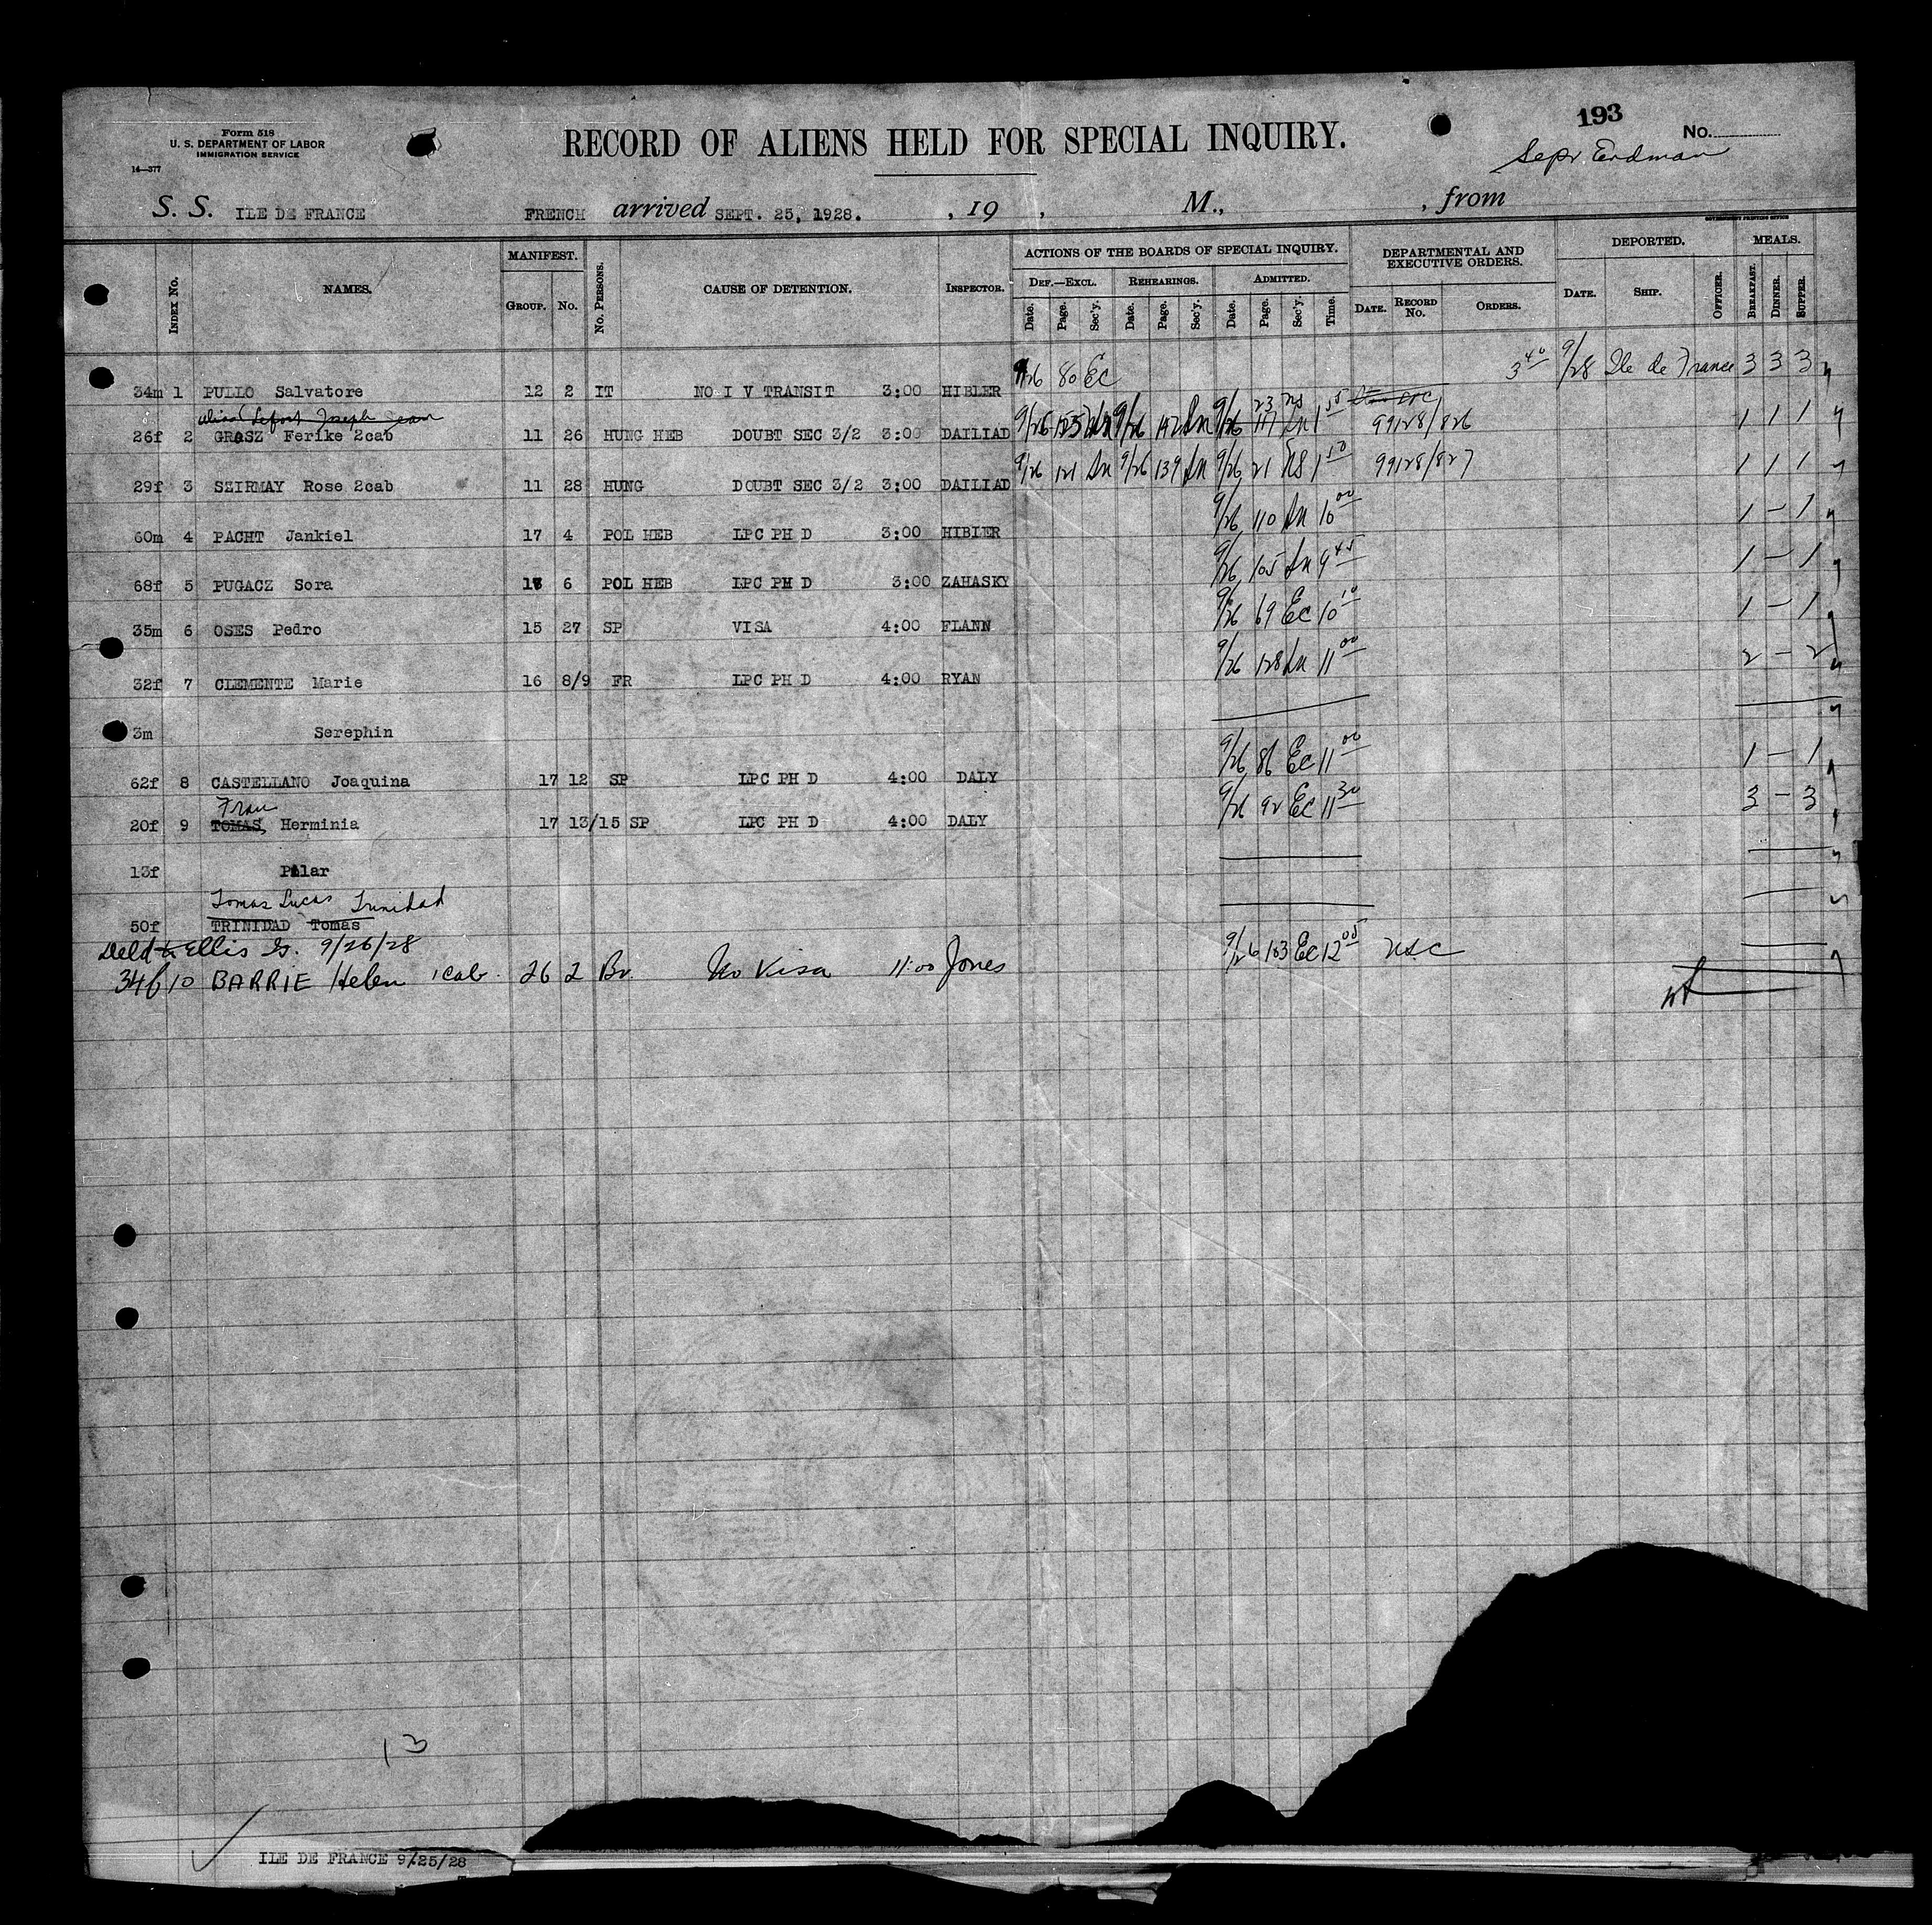 193
Form 518
U. S. DEPARTMENT OF LABOR
IMMIGRATION SERVICE
14—377
RECORD OF ALIENS HELD FOR SPECIAL INQUIRY.
No.
Erdman
S. S. ILE DE FRANCE FRENCH arrived SEPT. 25, 1928. , 19 , M., , from
GOVERNMENT PRINTING OFFICE
Index No. NAMES. MANIFEST. Group. No. No. Persons. CAUSE OF DETENTION. Inspector. ACTIONS OF THE BOARDS OF SPECIAL INQUIRY. Def.—Excl. Date. Page. Sec'y. Rehearings. Date. Page. Sec'y. Admitted. Date. Page. Sec'y. Time. DEPARTMENTAL AND EXECUTIVE ORDERS. Date. Record No. Orders. DEPORTED. Date. Ship. Officer. MEALS. Breakfast. Dinner. Supper.
34m 1 PULLO Salvatore 12 2 IT NO I V TRANSIT 3:00 HIBLER 9/26 80 Ec 3 40 9/28 Ile de France 3 3 3
alias Lefort Joseph Jean
26f 2 GROSZ Ferike 2cab 11 26 HUNG HEB DOUBT SEC 3/2 3:00 DAILIAD 9/26 9/26 142 9/26 99128/826 1 1 1
29f 3 SZIRMAY Rose 2cab 11 28 HUNG DOUBT SEC 3/2 3:00 DAILIAD 9/26 121 9/26 139 9/26 21 NS 1 10 99128/827 1 1 1
60m 4 PACHT Jankiel 17 4 POL HEB LPC PH D 3:00 HIBLER 9/26 110 10 00 1 – 1
68f 5 PUGACZ Sora 17 6 POL HEB LPC PH D 3:00 ZAHASKY 9/26 105 9 45 1 – 1
35m 6 OSES Pedro 15 27 SP VISA 4:00 FLANN 9/26 69 Ec 10 10 1 – 1
32f 7 CLEMENTE Marie 16 8/9 FR LPC PH D 4:00 RYAN 9/26 128 11 00 2 – 2
3m Serephin
62f 8 CASTELLANO Joaquina 17 12 SP LPC PH D 4:00 DALY 9/26 86 Ec 11 00 1 – 1
Frau
20f 9 TOMAS, Herminia 17 13/15 SP LPC PH D 4:00 DALY 9/26 92 Ec 11 30 3 – 3
13f Pilar
Tomas Lucas Trinidad
50f TRINIDAD Tomas
Deld to Ellis Is. 9/26/28
34f 10 BARRIE Helen 1 cab. 26 2 Br. No Visa 11:00 Jones 9/26 103 Ec 12 05 USC
13
ILE DE FRANCE 9/25/28